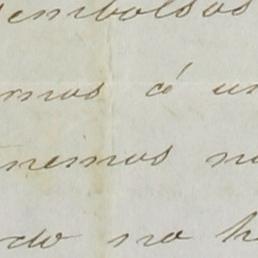 embolsos
rmos có un
nemos no
do no h